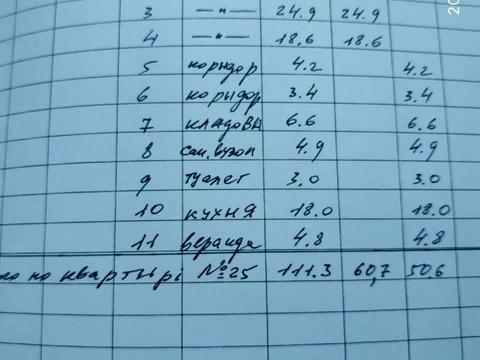 3 —"— 24.9 24.9
4 —"— 18.6 18.6
5 коридор 4.2 4.2
6 коридор 3.4 3.4
7 кладовк 6.6 6.6
8 сан.узел 4.9 4.9
9 туалет 3.0 3.0
10 кухня 18.0 18.0
11 веранда 4.8 4.8
по квартыри №25 111.3 60,7 50.6